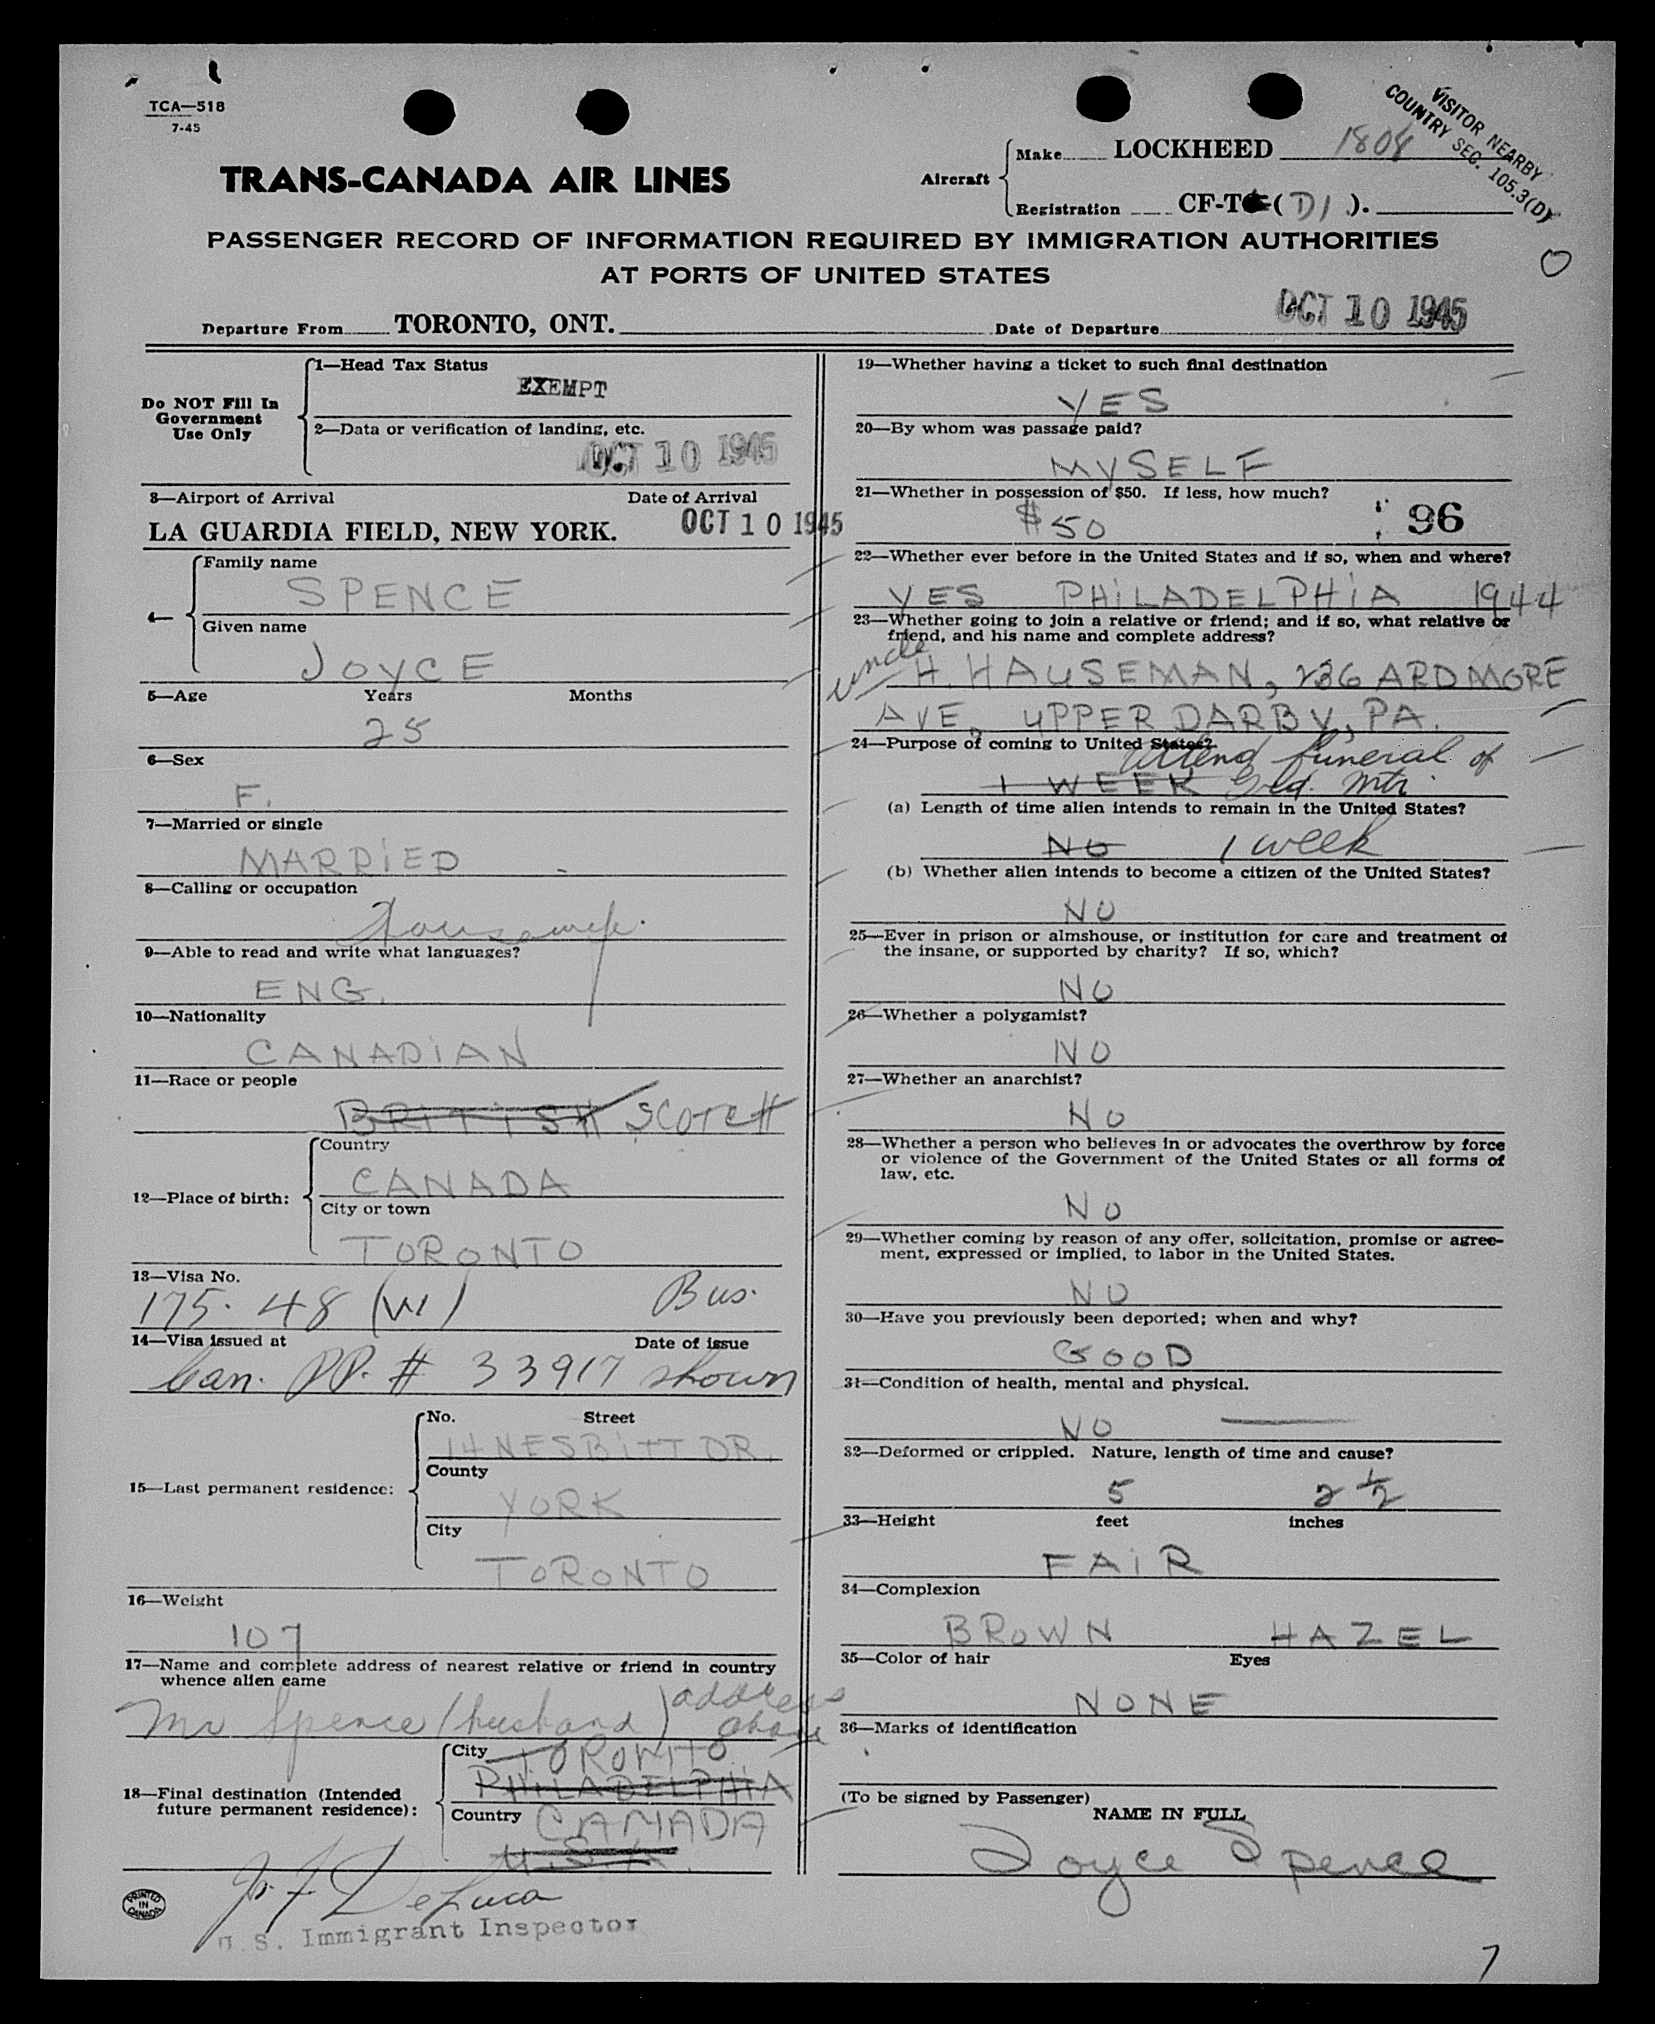 TCA—518
7-45
VISITOR NEARBY
COUNTRY SEC. 105.3(D)
TRANS-CANADA AIR LINES
Aircraft
Make LOCKHEED 1808
Registration CF-T (D1).
PASSENGER RECORD OF INFORMATION REQUIRED BY IMMIGRATION AUTHORITIES
AT PORTS OF UNITED STATES
O
Departure From TORONTO, ONT. Date of Departure OCT 10 1945
Do NOT Fill In
Government
Use Only
1—Head Tax Status
EXEMPT
2—Data or verification of landing, etc.
OCT 10 1945
3—Airport of Arrival Date of Arrival
LA GUARDIA FIELD, NEW YORK. OCT 10 1945
4—
Family name
SPENCE
Given name
JOYCE
5—Age Years Months
25
6—Sex
F.
7—Married or single
MARRIED
8—Calling or occupation
Housewife.
9—Able to read and write what languages?
ENG.
10—Nationality
CANADIAN
11—Race or people
BRITISH SCOTCH
12—Place of birth:
Country
CANADA
City or town
TORONTO
13—Visa No.
175. 48 (W) Bus.
14—Visa issued at Date of issue
Can. PP. # 33917 shown
15—Last permanent residence:
No. Street
14 NESBITT DR.
County
YORK
City
TORONTO
16—Weight
107
17—Name and complete address of nearest relative or friend in country
whence alien came
Mr Spence (husband) address
above
18—Final destination (Intended
future permanent residence):
City TORONTO
PHILADELPHIA
Country CANADA
U.S.A.
J. F. DeLuca
U.S. Immigrant Inspector
PRINTED
IN
CANADA
19—Whether having a ticket to such final destination
YES
20—By whom was passage paid?
MYSELF
21—Whether in possession of $50. If less, how much?
$50 96
22—Whether ever before in the United States and if so, when and where?
YES PHILADELPHIA 1944
23—Whether going to join a relative or friend; and if so, what relative or
friend, and his name and complete address?
uncle H. HAUSEMAN, 236 ARDMORE
AVE, UPPER DARBY, PA.
24—Purpose of coming to United States?
attend funeral of
1 WEEK Grd. Mtr.
(a) Length of time alien intends to remain in the United States?
NO 1 week
(b) Whether alien intends to become a citizen of the United States?
NO
25—Ever in prison or almshouse, or institution for care and treatment of
the insane, or supported by charity? If so, which?
NO
26—Whether a polygamist?
NO
27—Whether an anarchist?
NO
28—Whether a person who believes in or advocates the overthrow by force
or violence of the Government of the United States or all forms of
law, etc.
NO
29—Whether coming by reason of any offer, solicitation, promise or agree-
ment, expressed or implied, to labor in the United States.
NO
30—Have you previously been deported; when and why?
GOOD
31—Condition of health, mental and physical.
NO
32—Deformed or crippled. Nature, length of time and cause?
5 2 1/2
33—Height feet inches
FAIR
34—Complexion
BROWN HAZEL
35—Color of hair Eyes
NONE
36—Marks of identification
(To be signed by Passenger)
NAME IN FULL
Joyce Spence
7